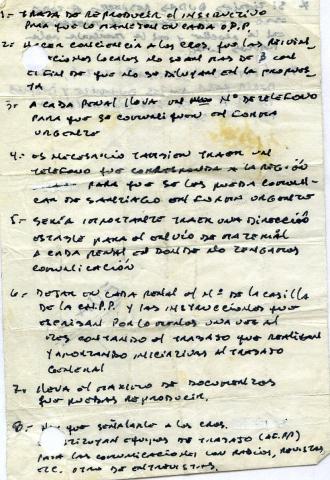 1.- TRATA DE REPRODUCIR EL INSTRUCTIVO
PARA QUE LO MANEJEN EN CADA O.P.P.
2.- HACER CONCIENCIA A LOS CROS. QUE LAS REIVIN
CACIONES LOCALES NO SEAN MAS DE 3 CON
EL FIN DE QUE NO SE DILUYAN EN LA PROPUES
TA
3.- A CADA PENAL LLEVA UN Nº DE TELEFONO
PARA QUE SE COMUNIQUEN EN FORMA
URGENTE
4.- ES NECESARIO TAMBIEN TRAER UN
TELEFONO QUE CORRESPONDA A LA REGIÓN
PARA QUE SE LES PUEDA COMUNI-
CAR DE SANTIAGO EN FORMA URGENTE
5.- SERÍA IMPORTANTE TRAER UNA DIRECCIÓN
ESTABLE PARA EL ENVIO DE MATERIAL
A CADA PENAL EN DONDE NO TENGAMOS
COMUNICACIÓN
6.- DEJAR EN CADA PENAL EL Nº DE LA CASILLA
DE LA C.N.P.P. Y LAS INSTRUCCIONES QUE
ESCRIBAN POR LO MENOS UNA VEZ AL
MES CONTANDO EL TRABAJO QUE REALIZAN
Y APORTANDO INICIATIVAS AL TRABAJO
GENERAL
7.- LLEVA EL MAXIMO DE DOCUMENTOS
QUE PUEDAS REPRODUCIR.
8.- HAY QUE SEÑALARLE A LOS CROS.
EQUIPOS DE TRABAJO
PARA LAS COMUNICACIONES CON RADIOS, REVISTAS
ETC. OTRO DE ENTREVISTAS.